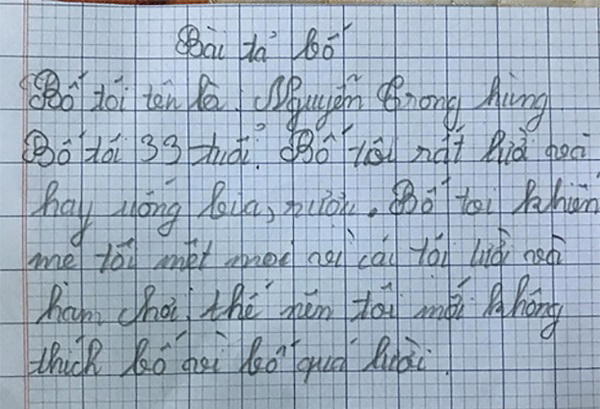 Bài tả bố
Bố tôi tên là Nguyễn Trong hùng
Bố tôi 33 tuổi. Bố tôi rất lười và
hay uống bia, rượu. Bố tôi khiến
mẹ tôi mệt mỏi vì cái tội lười và
ham chơi, thế nên tôi mới không
thích bố vì bố quá lười.